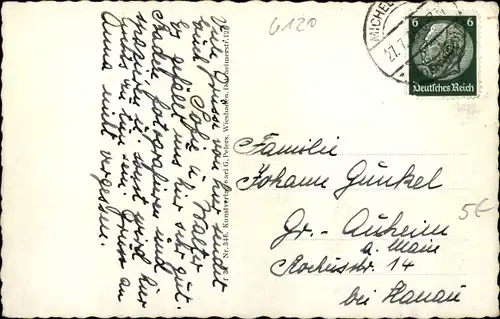 6120
MICHEL
27.7.
6 6
Deutsches Reich
Viele Grüsse von hier sendet
Euch Sofie u. Walter
Es gefällt uns hier sehr gut.
Baden, fotografieren und
spazieren u. sonst wird hier
Gruss an
Anna nicht vergessen.
Nr. 346. Kunstverlag Karl G. Peters, Wiesbaden, Dotzheimerstr. 126
Familie
Johann Gunkel
Gr.-Auheim
a. Main
Rochusstr. 14
bei Hanau
5€